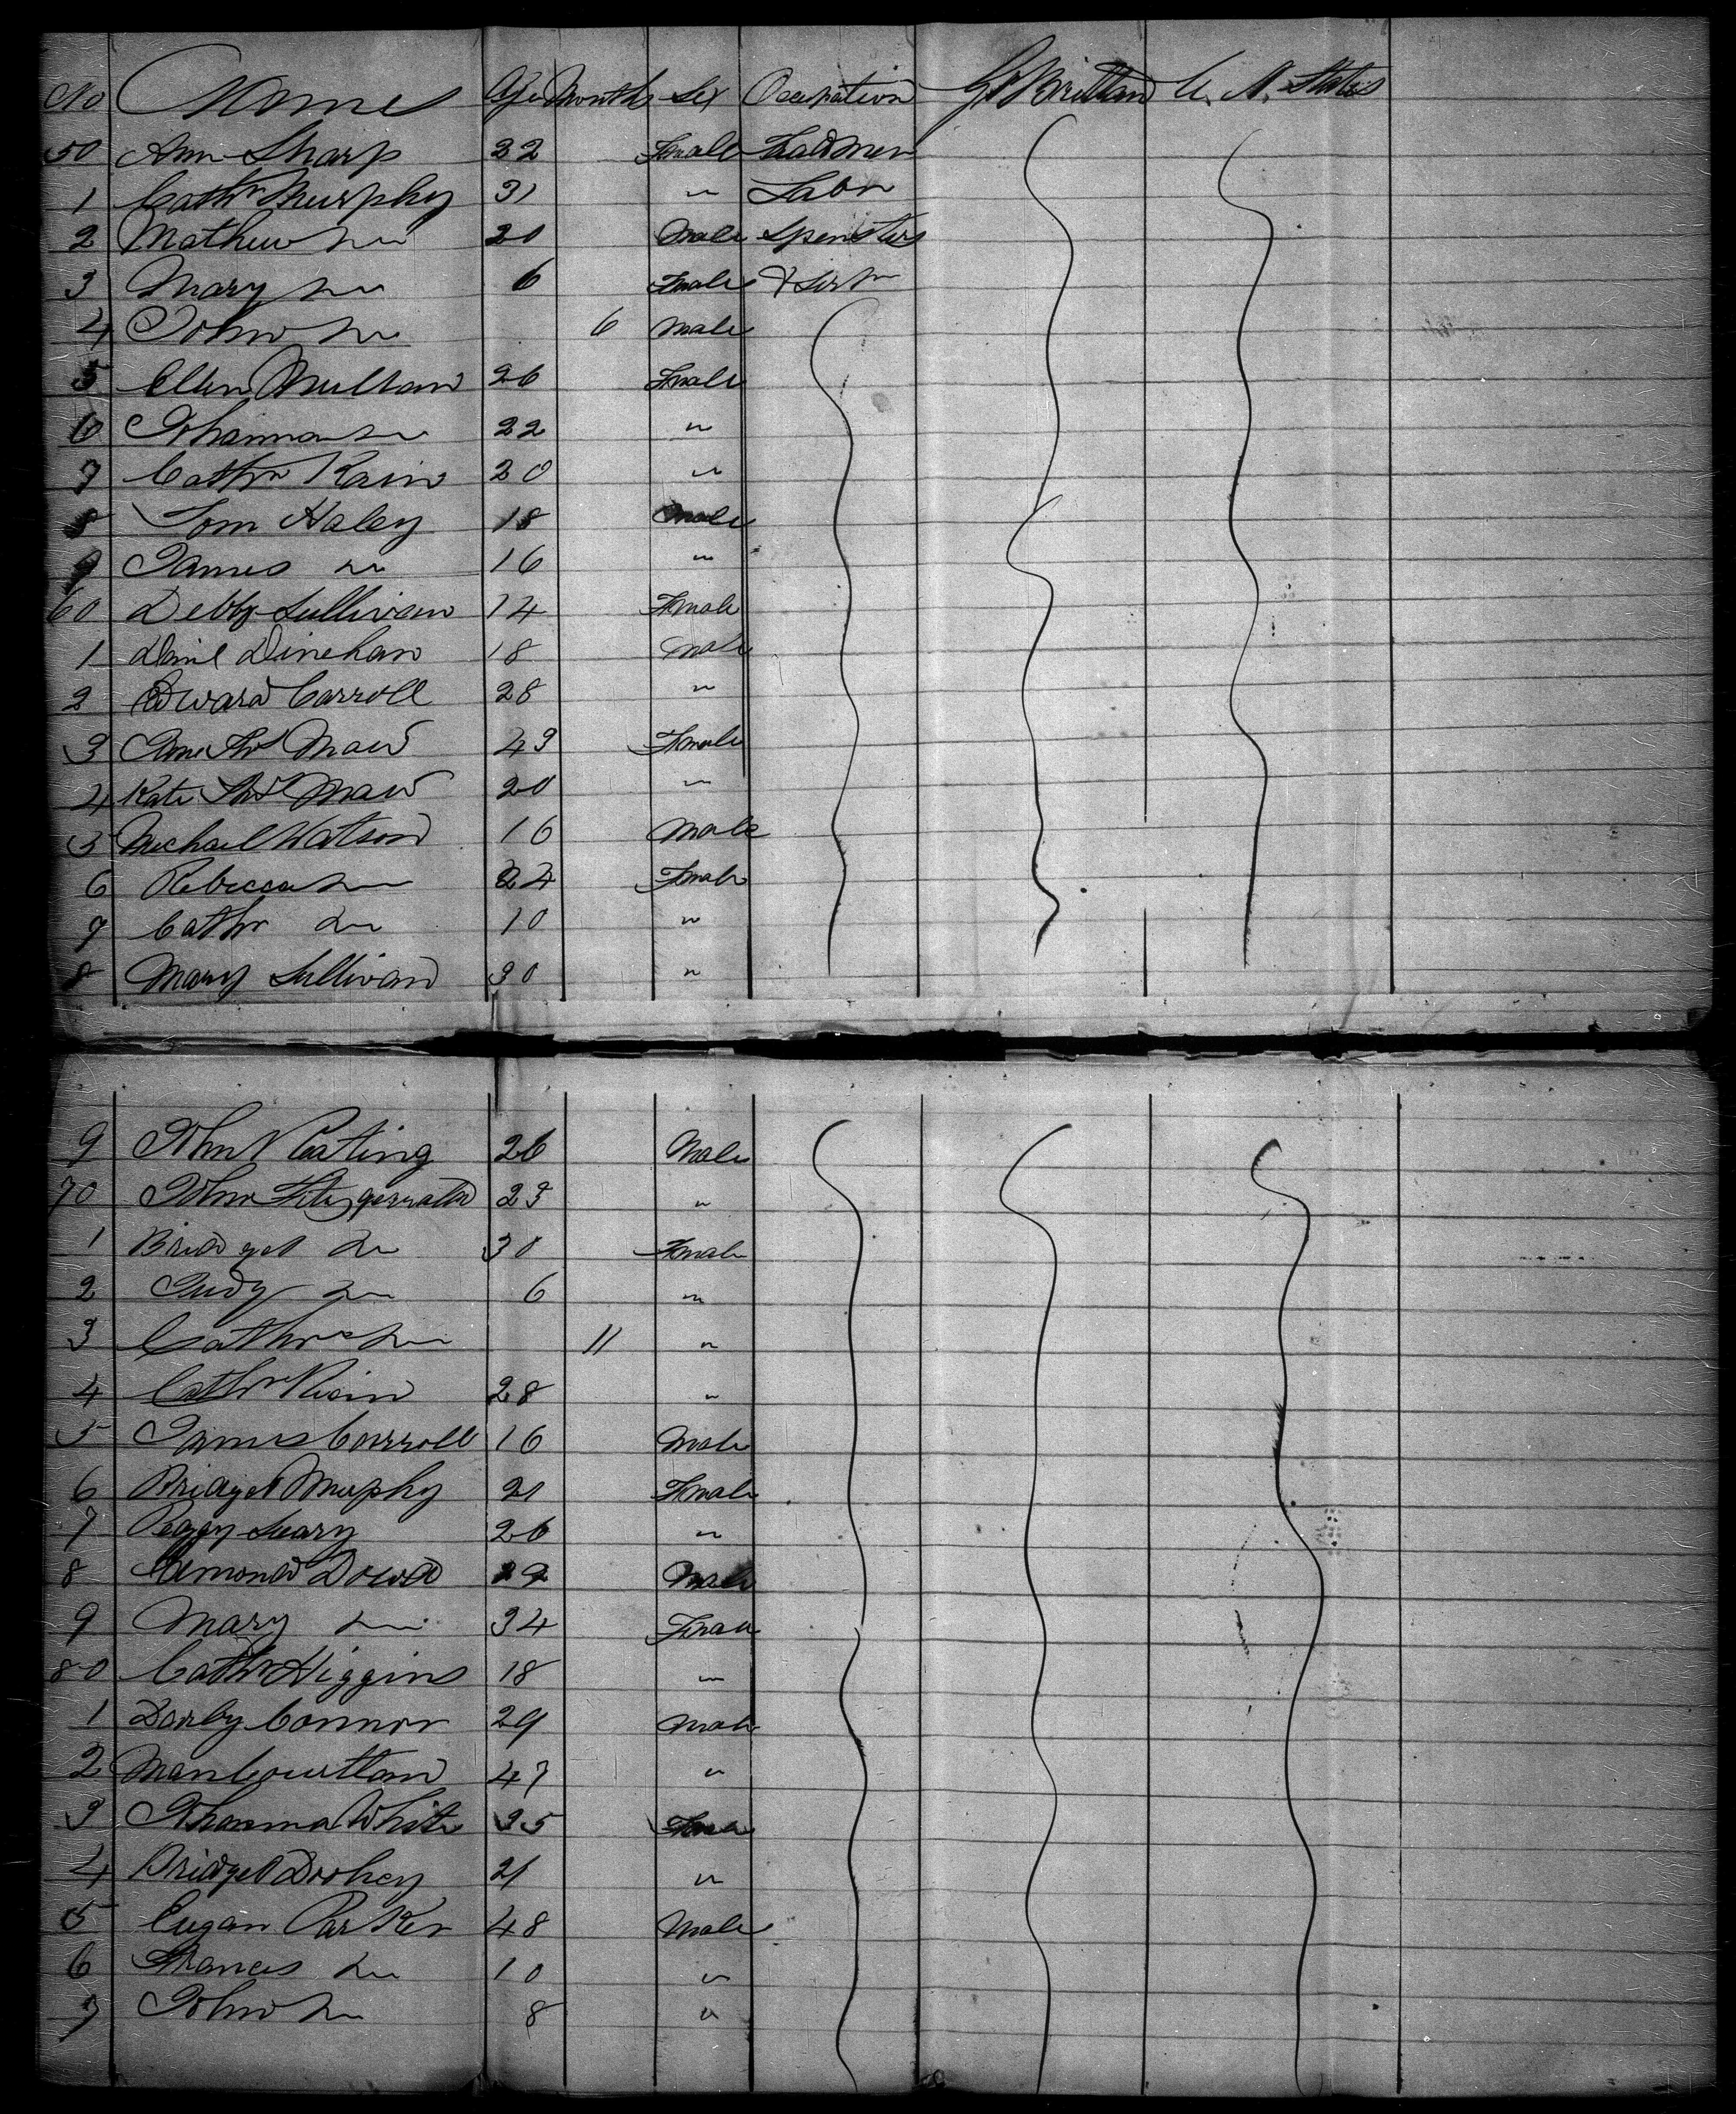 No Name Age Months Sex Occupation Gt Brittan U. N. States
50 Ann Sharp 22 Female Tradmen
1 Cathn Murphy 31 " Labr
2 Mathew Do 20 Male Spinsters
3 Mary Do 6 Female
4 John Do 6 Male
5 Ellen Mullan 26 Female
6 Johanna Do 22 "
7 Cathn Kain 20 "
8 Tom Haley 18 Male
9 James Do 16 "
60 Debby Sullivan 14 Female
1 Danil Dinehan 18 Male
2 Edward Carroll 28 "
3 43 Female
4 Kate 20 "
5 Michael Watson 16 Male
6 Rebecca Do 24 Female
7 Cathn Do 10 "
8 Mary Sullivan 30 "
9 John Keating 26 Male
70 John Fitzgerrald 23 "
1 Bridget Do 30 Female
2 Judy Do 6 "
3 Cathn Do 11 "
4 Cathn 28 "
5 James Carroll 16 Male
6 Bridget Murphy 21 Female
7 Peggy Leary 26 "
8 Dowd Male
9 Mary Do 34 Female
80 Cathn Higgins 18 "
1 Darby Connor 29 Male
2 47 "
3 Johanna White 35 Female
4 Bridget Doohey 21 "
5 Eugan Parker 48 Male
6 Frances Do 10 "
7 John Do 8 "